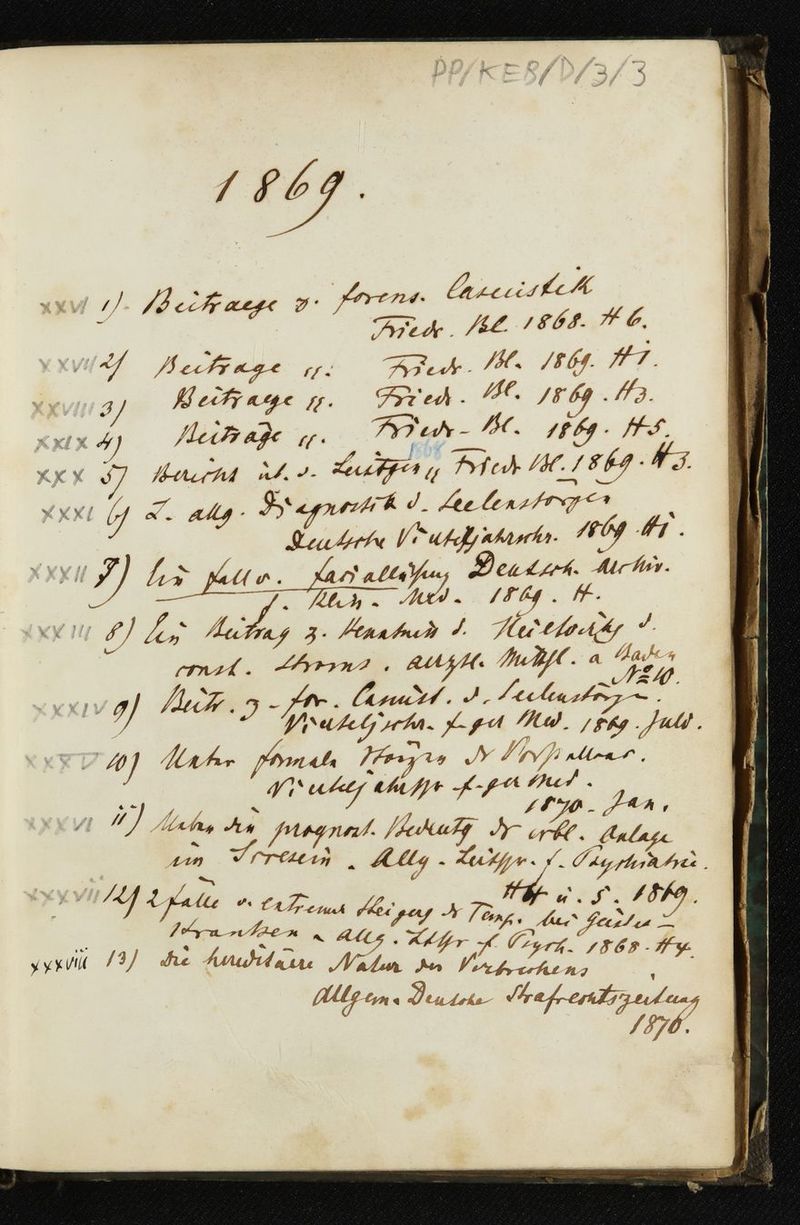 PP/KEB/D/3/3
1869.
XXVI 1) Beitraege z. forens. Casuistik
Friedr. Bl. 1868. H 6.
XXVII 2) Beitrage ,,. Friedr. Bl. 1869. H 1.
XXVIII 3) Beitraege ,,. Fried. Bl. 1869. H 3.
XXIX 4) Beiträge ,,. Friedr. Bl. 1869. H 5.
1868
XXX 5) Bericht üb. d. Friedr Bl. 1869. H 3.
XXXI 6) Z. allg. Diagnostik d. Seelenstörgen
Deutsche Vierteljahrschr. 1869 H 1.
XXXII 7) Ein Fall v. Deutsch. Archiv.
f. klin. Med. 1869. H.
XXXIII 8) Ein Beitrag z. Kenntniss d. d.
const. Stroms. aerztl. Mitthl. a Baden
No 10.
XXXIV 9) Beitr. z. for. Casuist. d. Seelenstörgen.
Vierteljschr. f. ger Med. 1869. Juli.
XXXV 10) Unter formale
Vierteljahrsschr f. ger Med.
1870. Jan.
XXXVI 11) Ueber die prognost. Bedeutg der erbl. Anlage
im Irresein. Allg. Zeitschr. f. Psychiatrie.
H 4 u. 5. 1869.
XXXVII 12) 2 Fälle v. extremer Steigerg der Temp. bei Geistes-
Kranken. Allg. Ztschr f. Psych. 1868. H 4.
XXXVIII 13) Die hereditäere Natur des Verbrechens
Allgem. Deutsche Strafrechtszeitung
1870.